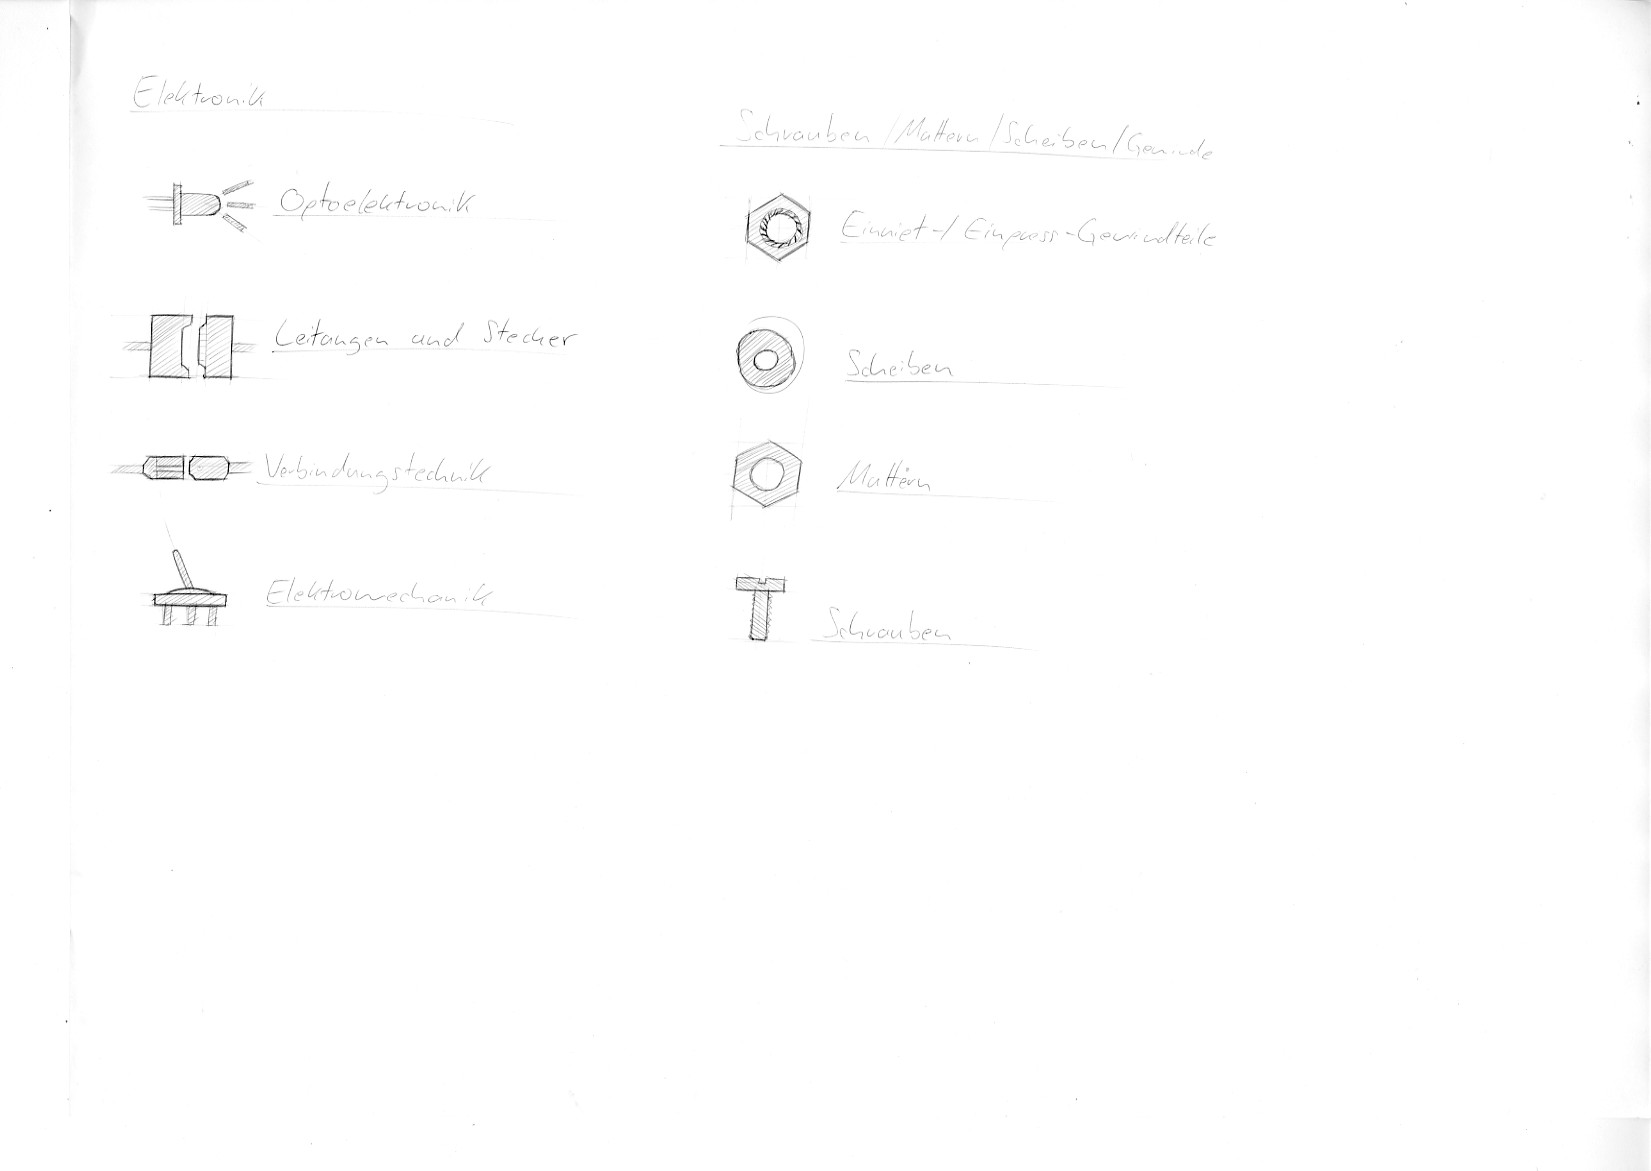 Elektronik
Optoelektronik
Leitungen und Stecker
Verbindungstechnik
Elektromechanik
Schrauben / Muttern / Scheiben / Gewinde
Einniet-/ Einpress-Gewindteile
Scheiben
Muttern
Schrauben